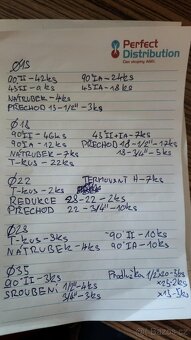 Perfect
Distribution
Ø15
90°II - 42ks 90°IA - 24ks
45°II - 9ks 45°IA - 18ks
NÁTRUBEK - 4ks
PŘECHOD 15-1/2" - 3ks
Ø18
90°II - 46ks 45°II+IA - 7ks
90°IA - 12ks PŘECHOD 18-1/2" - 17ks
NÁTRUBEK - 7ks 18-3/4" - 5ks
T-KUS - 22ks
Ø22 H - 7ks
T-KUS - 2ks
REDUKCE 28-22 - 2ks
PŘECHOD 22-3/4" - 10ks
T-KUS - 3ks 90°II - 10ks
NÁTRUBEK - 4ks 90°IA - 10ks
Ø35
90°II - 3ks
ŠROUBENÍ 1/2" - 4ks
3/4" - 3ks